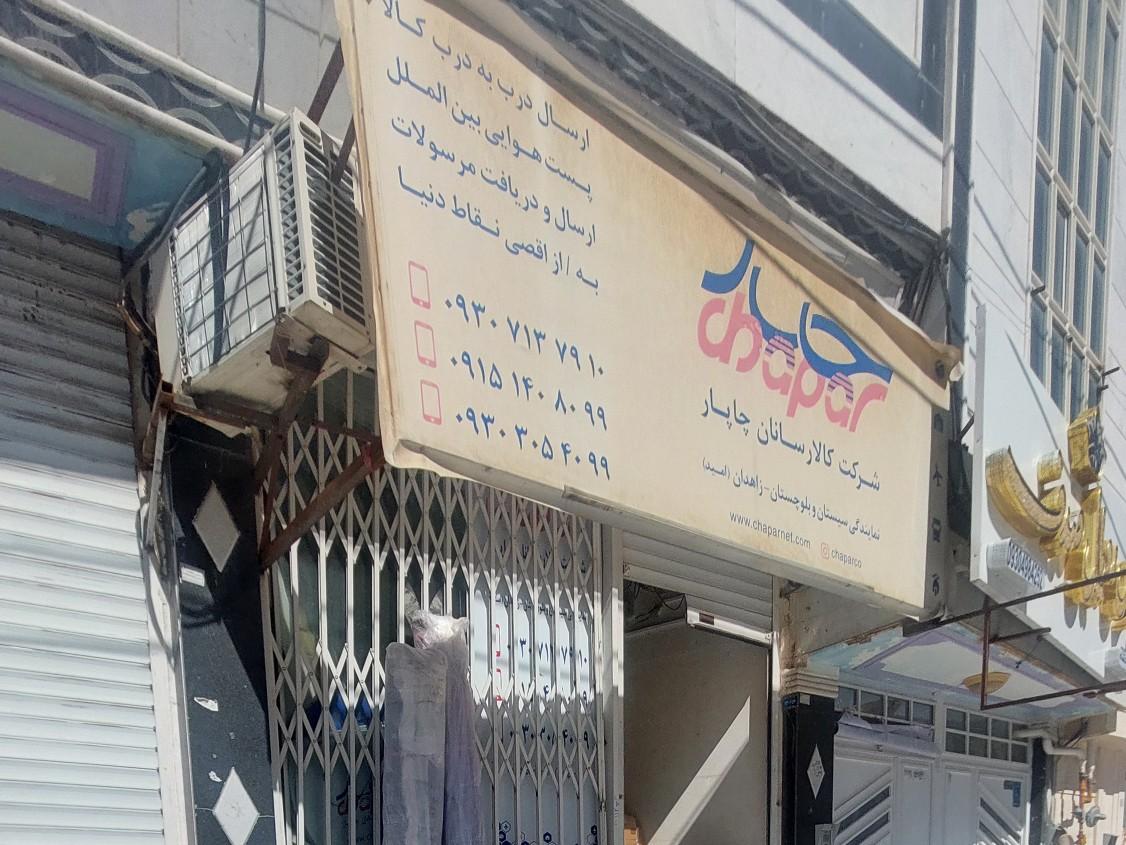 ارسال درب به درب کالا
پست هوایی بین الملل
ارسال و دریافت مرسولات
به / از اقصی نقاط دنیا
۰۹۳۰ ۷۱۳ ۷۹ ۱۰
۰۹۱۵ ۱۴۰ ۸۰ ۹۹
۰۹۳۰ ۳۰۵ ۴۰ ۹۹
چاپار
chapar
شرکت کالارسانان چاپار
نمایندگی سیستان و بلوچستان - زاهدان (امید)
www.chaparnet.com
chaparco